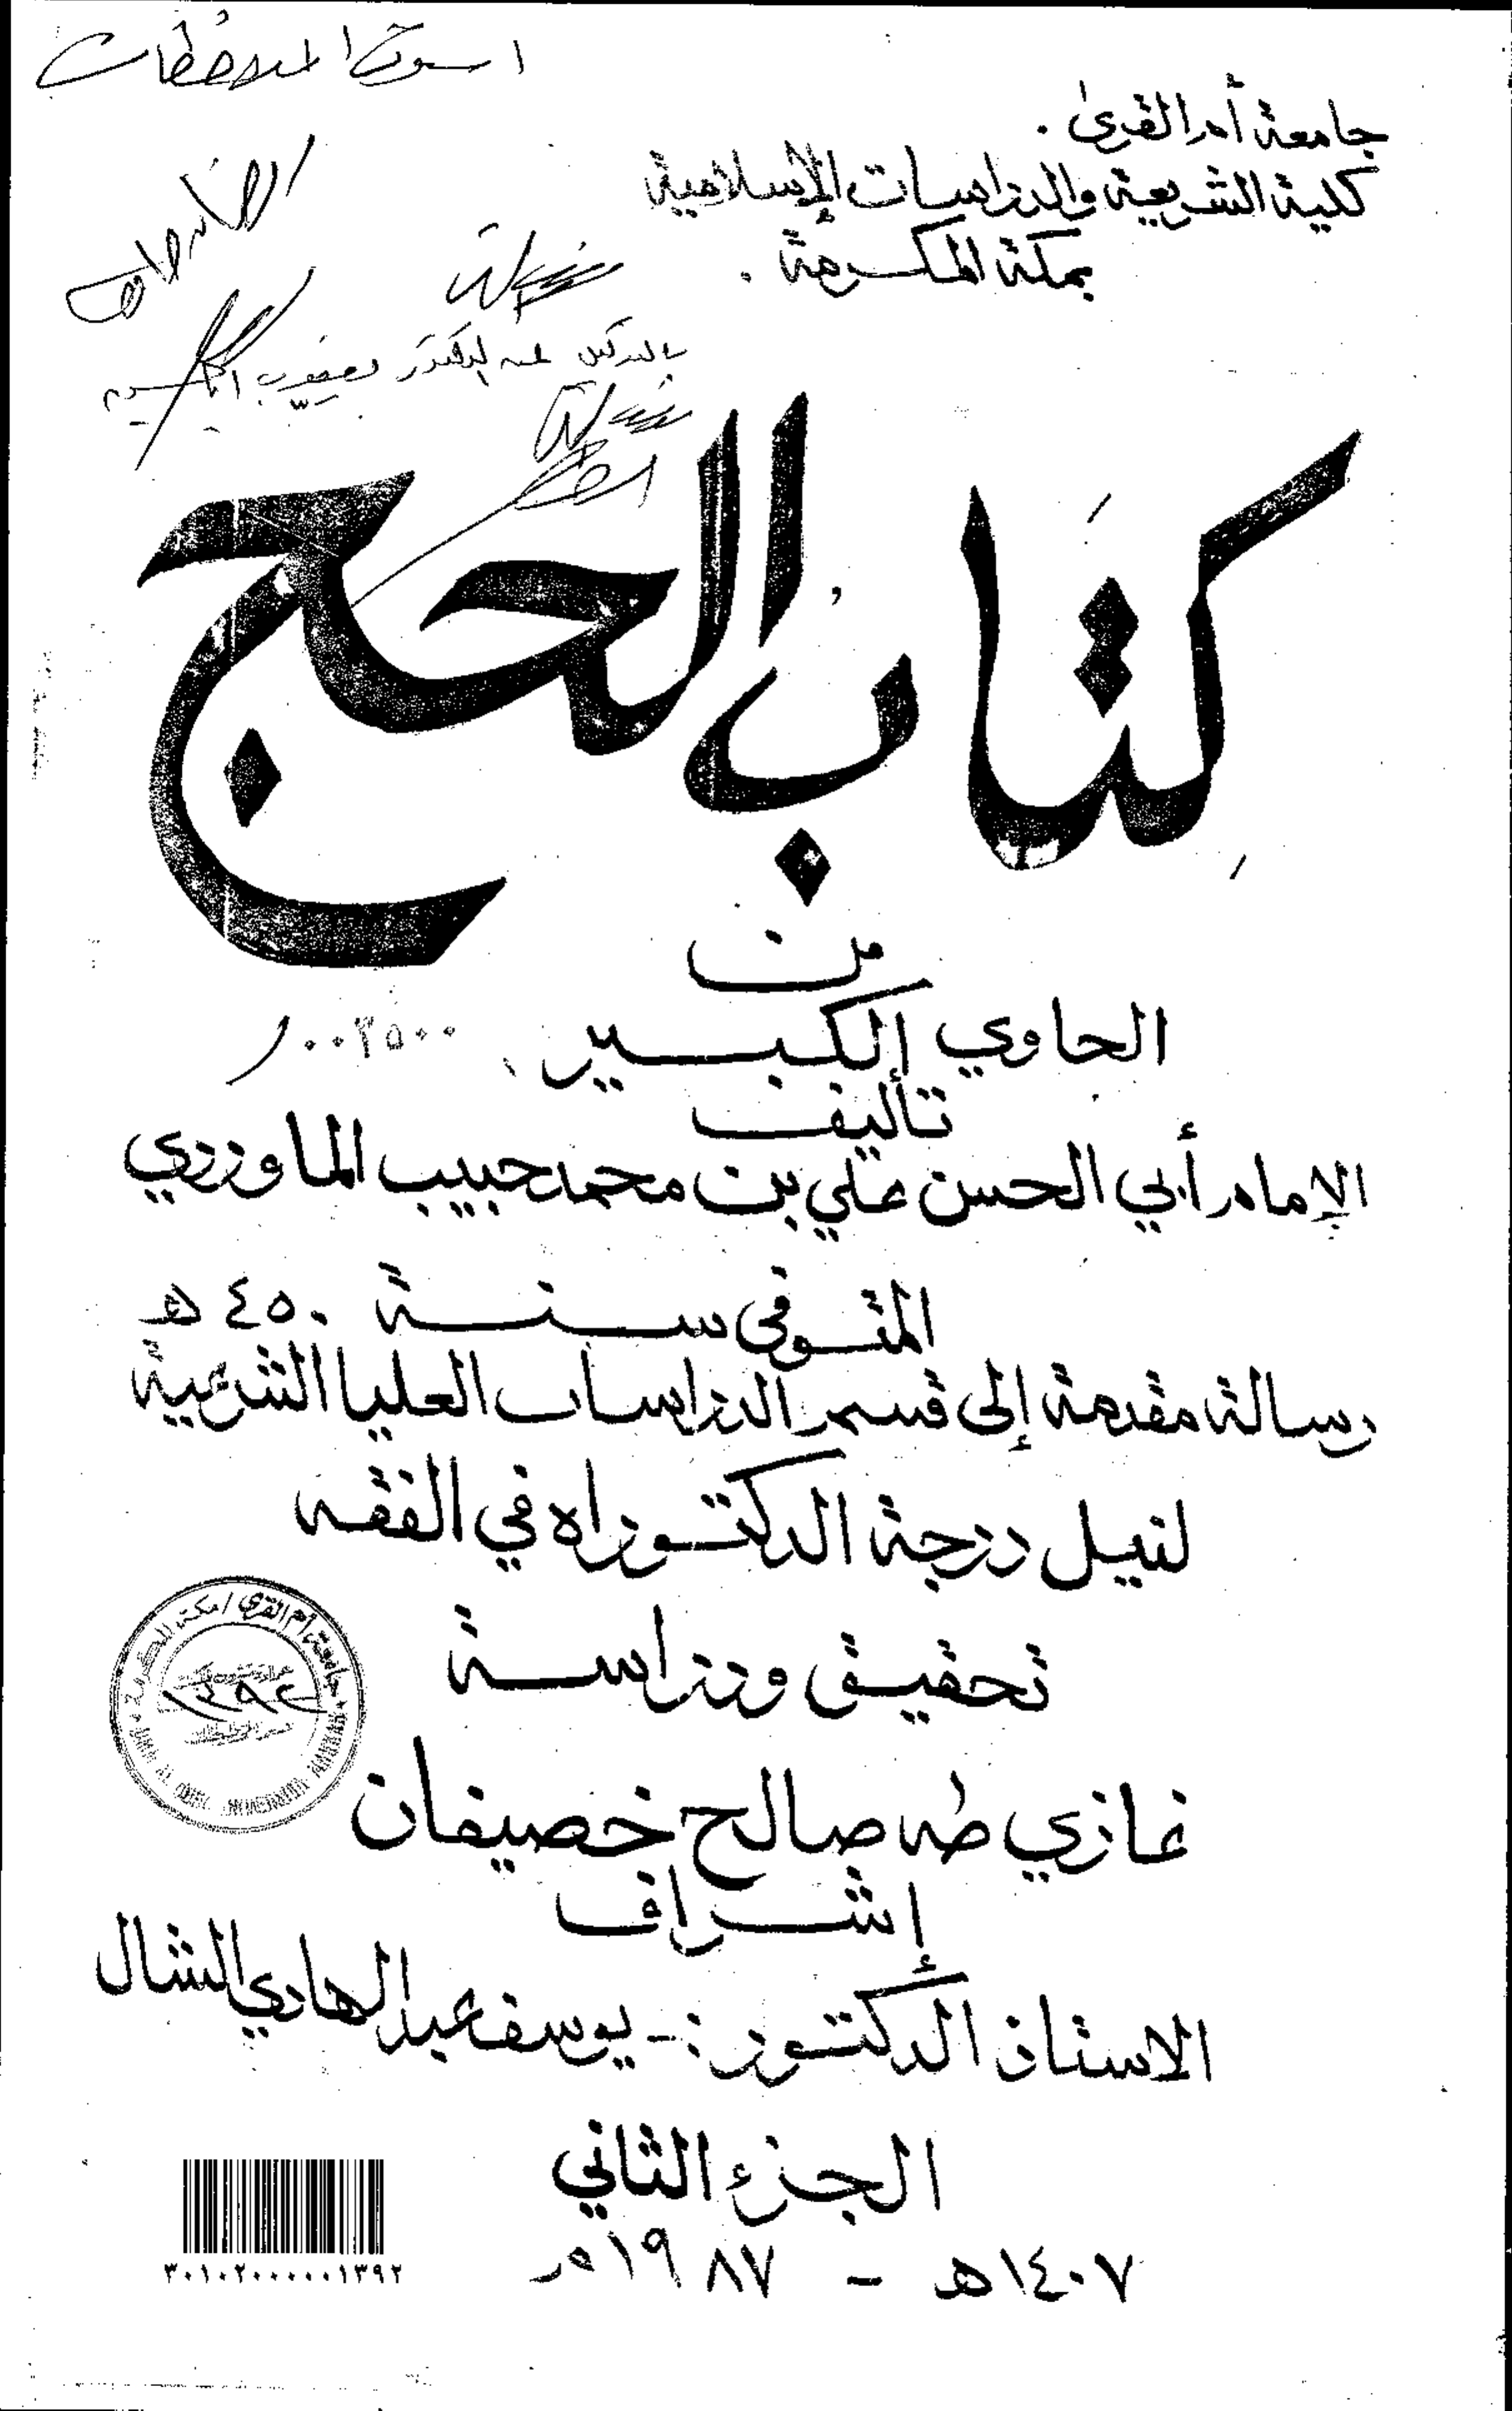 جامعة أم القرى .
كلية الشريعة والدراسات الإسلامية
بمكة المكرمة .
كتاب الحج
من
الحاوي الكبير
٠٠٣٥٠٠
تأليف
الإمام أبي الحسن علي بن محمد حبيب الماوردي
المتوفى سنة ٤٥٠ هـ
رسالة مقدمة إلى قسم الدراسات العليا الشرعية
لنيل درجة الدكتوراه في الفقه
تحقيق ودراسة
جامعة أم القرى / مكة المكرمة
١٣٩٢
غازي طه صالح خصيفان
إشراف
الاستاذ الدكتور :- يوسف عبد الهادي الشال
الجزء الثاني
١٤٠٧هـ - ١٩٨٧م
٣٠١٠٢٠٠٠٠٠٠١٣٩٢